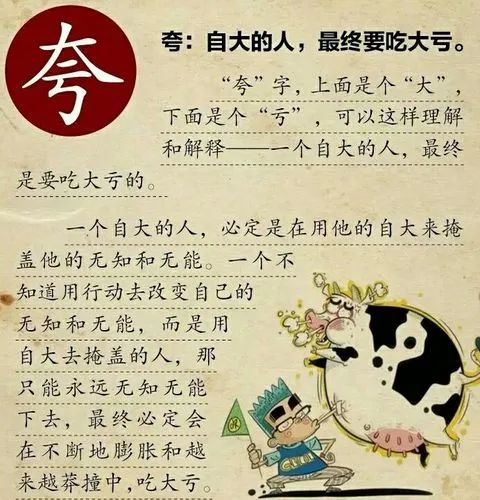 夸
夸：自大的人，最终要吃大亏。
“夸”字，上面是个“大”，
下面是个“亏”，可以这样理解
和解释——一个自大的人，最终
是要吃大亏的。
一个自大的人，必定是在用他的自大来掩
盖他的无知和无能。一个不
知道用行动去改变自己的
无知和无能，而是用
自大去掩盖的人，那
只能永远无知无能
下去，最终必定会
在不断地膨胀和越
来越莽撞中，吃大亏。